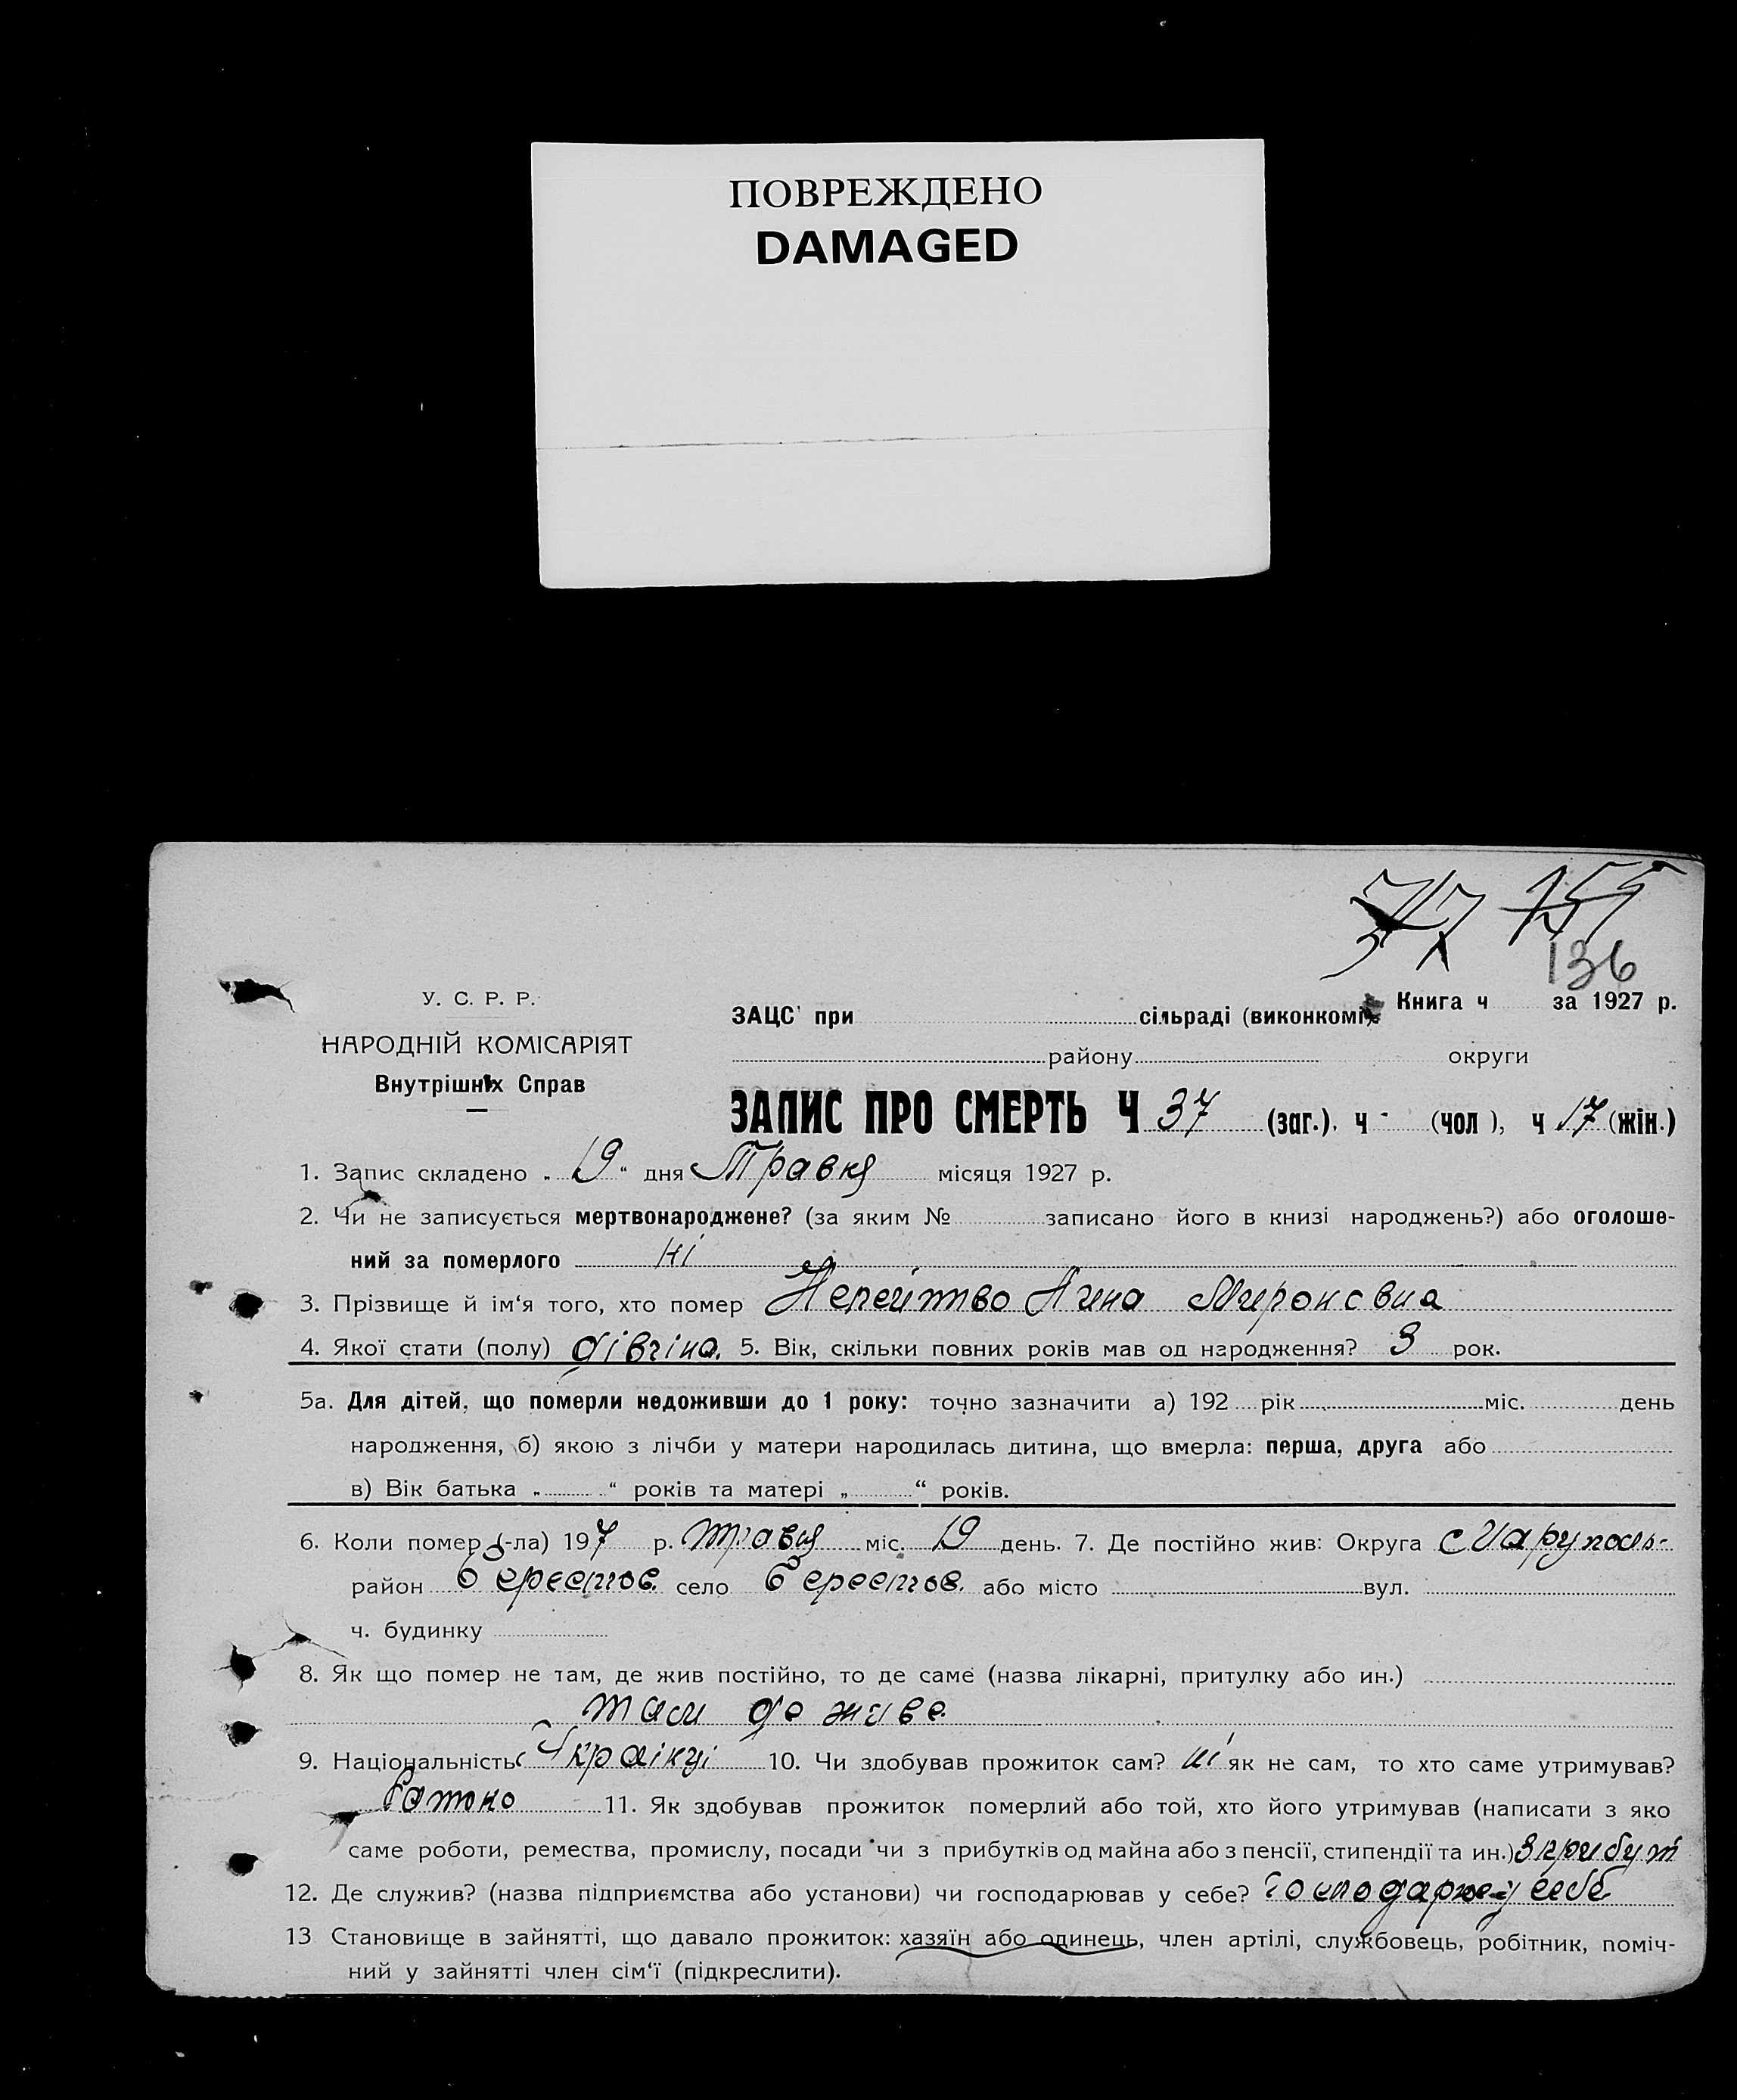 ПОВРЕЖДЕНО
DAMAGED
136
У. С. Р. Р.
НАРОДНІЙ КОМІСАРІЯТ
Внутрішніх Справ
Книга ч за 1927 р.
ЗАЦС при сільраді (виконкомі)
району округи
ЗАПИС ПРО СМЕРТЬ Ч 37 (заг.). ч - (чол ), ч 17 (жін.)
1. Запис складено „ 19 “ дня Травня місяця 1927 р.
2. Чи не записується мертвонароджене? (за яким № записано його в книзі народжень?) або оголоше-
ний за померлого ні
3. Прізвище й ім‘я того, хто помер Нина Мироновна
4. Якої стати (полу) дівчина. 5. Вік, скільки повних років мав од народження? 3 рок.
5а. Для дітей, що померли недоживши до 1 року: точно зазначити а) 192 рік міс. день
народження, б) якою з лічби у матери народилась дитина, що вмерла: перша, друга або
в) Вік батька „ “ років та матері „ “ років.
6. Коли помер (-ла) 197 р. травня міс. 19 день. 7. Де постійно жив: Округа Маруполь-
район Берестов. село Берестов. або місто вул.
ч. будинку
8. Як що помер не там, де жив постійно, то де саме (назва лікарні, притулку або ин.)
там де живе
9. Національність Українці 10. Чи здобував прожиток сам? ні як не сам, то хто саме утримував?
батько 11. Як здобував прожиток померлий або той, хто його утримував (написати з яко
саме роботи, ремества, промислу, посади чи з прибутків од майна або з пенсії, стипендії та ин.) з прибут
12. Де служив? (назва підприємства або установи) чи господарював у себе? господарює у себе
13 Становище в зайнятті, що давало прожиток: хазяїн або одинець, член артілі, службовець, робітник, поміч-
ний у зайнятті член сім‘ї (підкреслити).